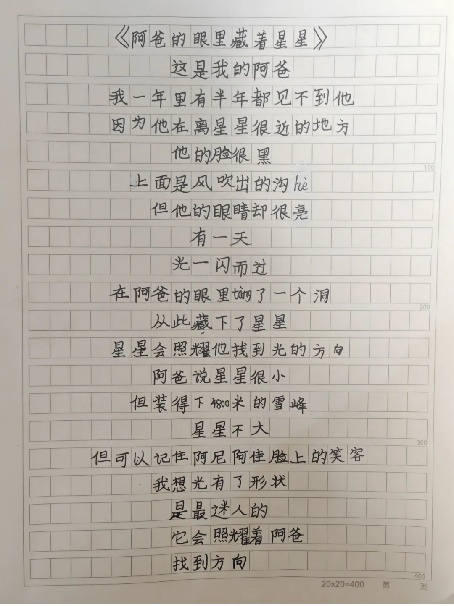 《阿爸的眼里藏着星星》
这是我的阿爸
我一年里有半年都见不到他
因为他在离星星很近的地方
他的脸很黑
上面是风吹出的沟hè
但他的眼睛却很亮
有一天
光一闪而过
在阿爸的眼里tàng了一个洞
从此藏下了星星
星星会照耀他找到光的方向
阿爸说星星很小
但装得下4800米的雪峰
星星不大
但可以记住阿尼阿佳脸上的笑容
我想光有了形状
是最迷人的
它会照耀着阿爸
找到方向
100
200
300
400
20×20=400 第 页